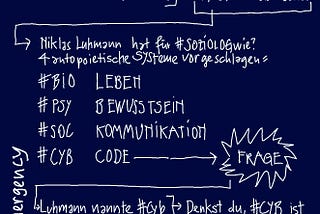 Niklas Luhmann hat für #SOZIOLOGwie?
4 autopoietische Systeme vorgeschlagen=
#BIO LEBEN
#PSY BEWUSSTSEIN
#SOC KOMMUNIKATION
#CYB CODE → FRAGE
mergency
Luhmann nannte #Cyb → Denkst du, #CYB ist